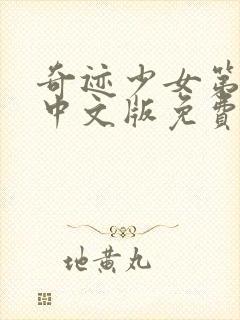 奇迹少女第
中文版免费
地黄丸